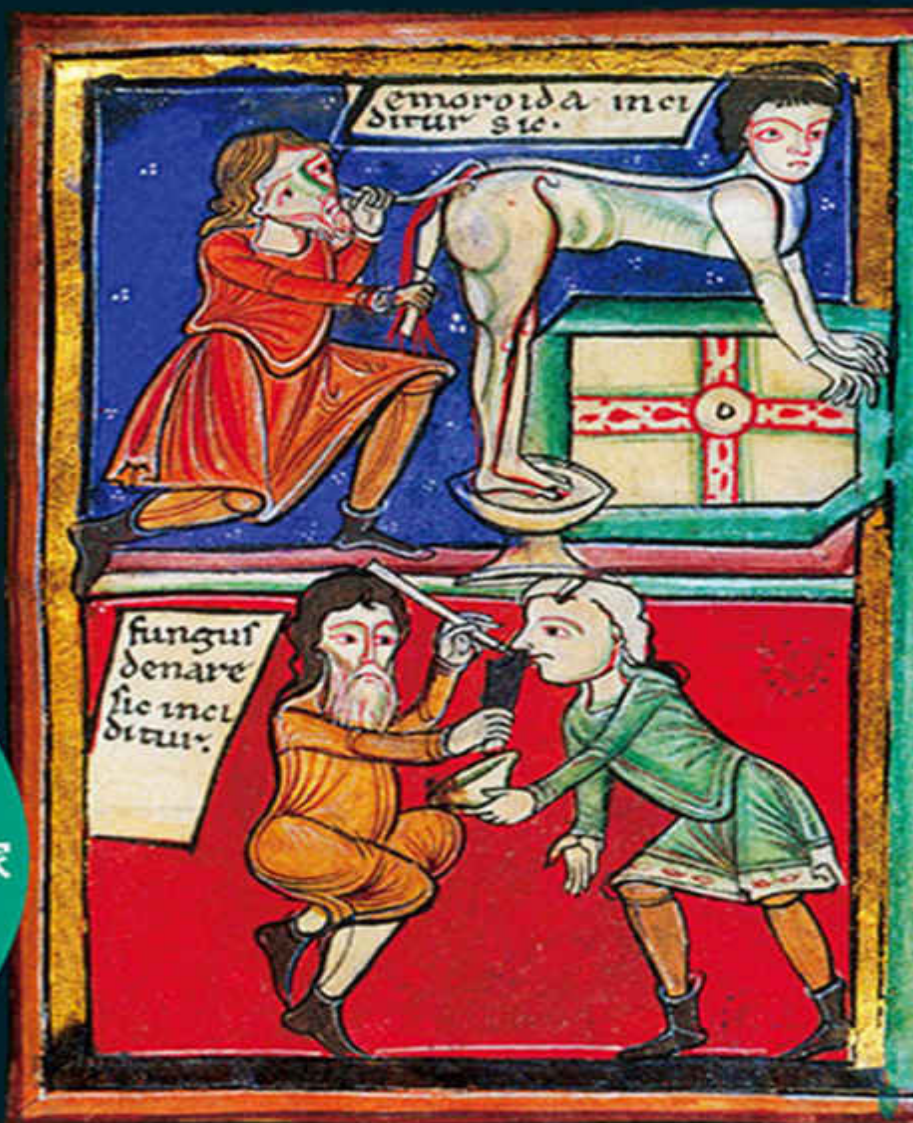 emoroida inci
ditur sic.
funguſ
denare
ſic inci
ditur.